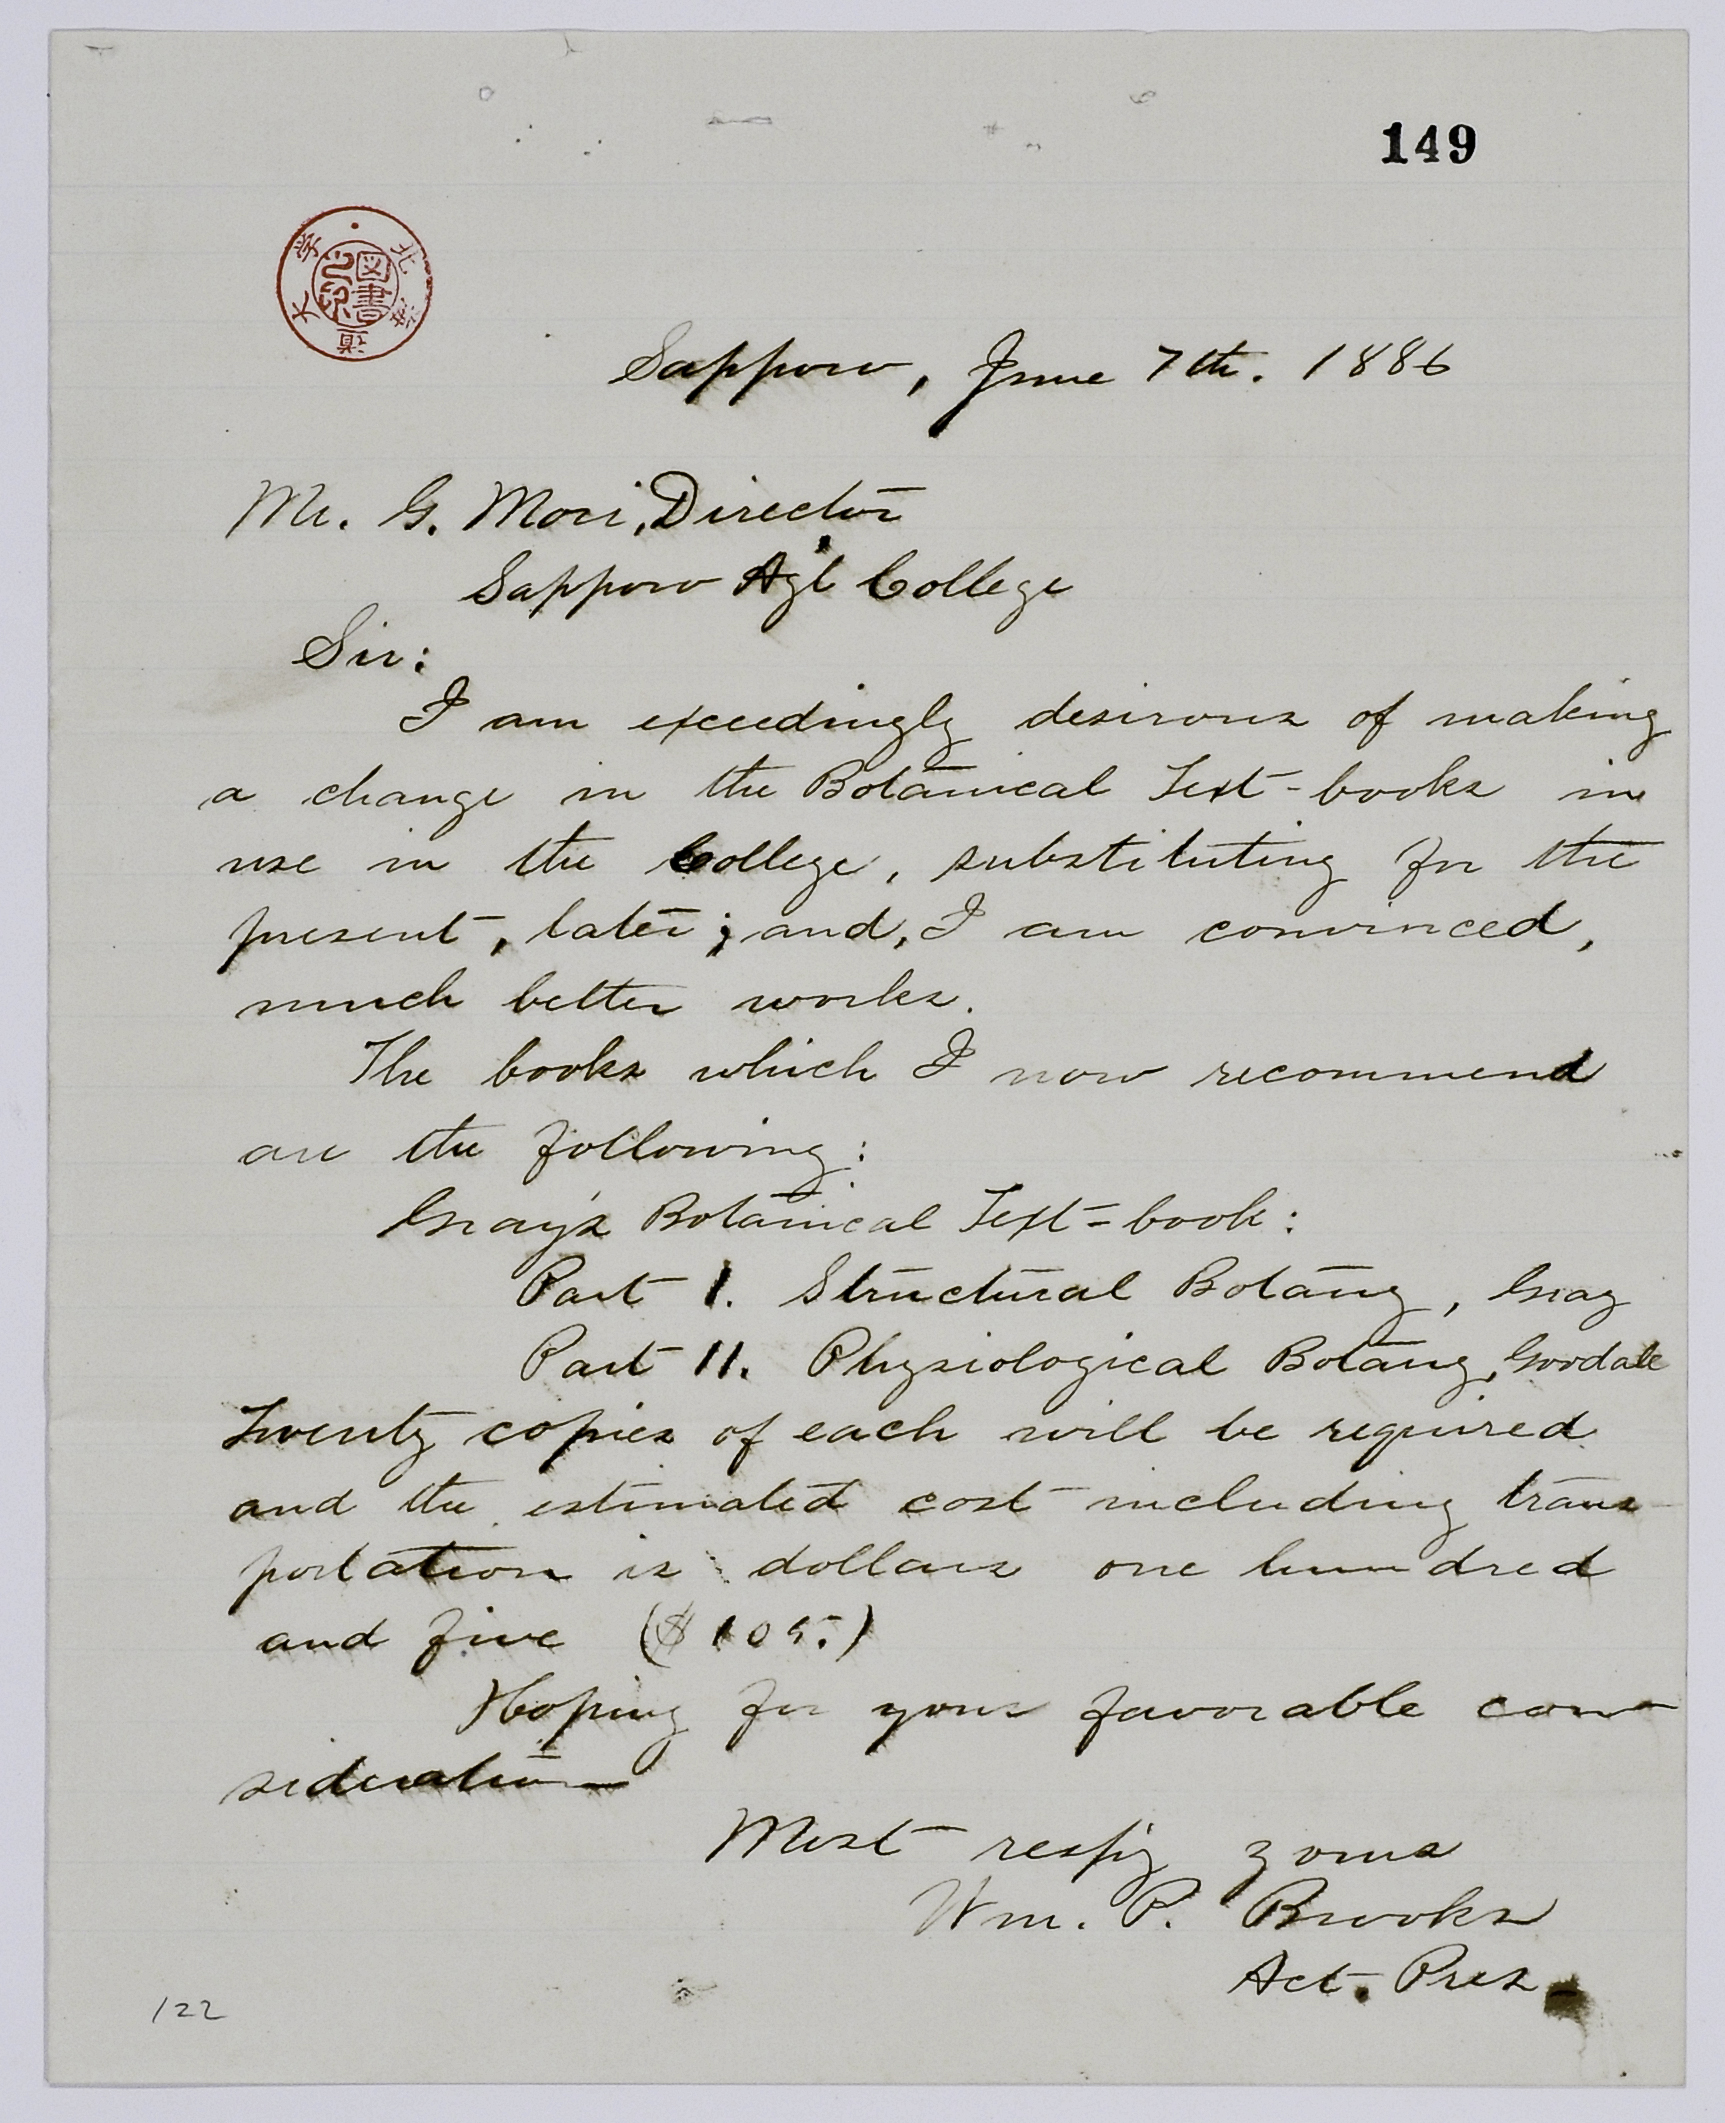 149
北海道大学
図書之印
Sapporo, June 7th. 1886
Mr. G. Mori, Director
Sapporo Agl College
Sir:
I am exceedingly desirous of making
a change in the Botanical Text-books in
use in the College, substituting for the
present, later; and, I am convinced,
much better works.
The books which I now recommend
are the following:
Gray's Botanical Text-book:
Part I. Structural Botany, Gray
Part II. Physiological Botany, Goodale
Twenty copies of each will be required
and the estimated cost including trans-
portation is dollars one hundred
and five ($105.)
Hoping for your favorable con-
sideration
Most resp'y yours
Wm. P. Brooks
Act. Pres.
122